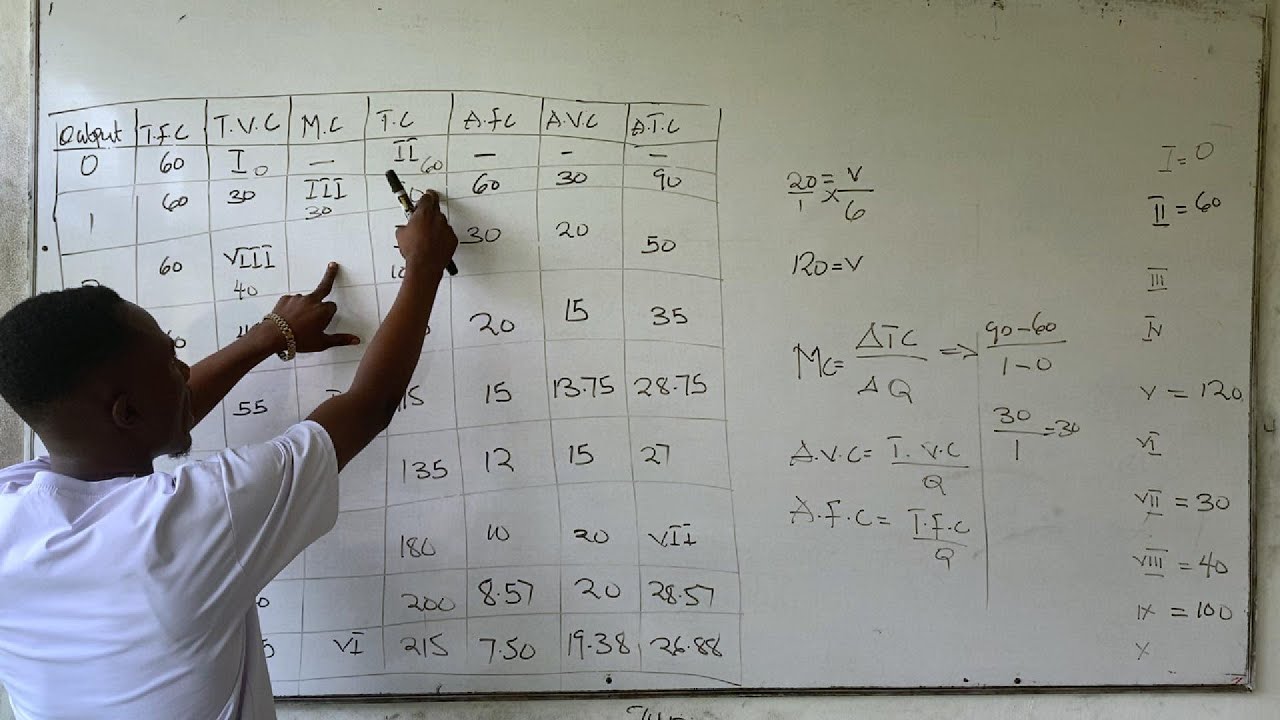 Output T.F.C T.V.C M.C T.C A.F.C A.V.C A.T.C
0 60 I 0 — II 60 — — —
1 60 30 III 30 60 30 90
60 VIII 40 30 20 50
20 15 35
55 15 13.75 28.75
135 12 15 27
180 10 20 VII
200 8.57 20 28.57
VI 215 7.50 19.38 26.88
20/1 = V/6
120 = V
MC = ΔTC/ΔQ => 90-60/1-0
30/1 = 30
A.V.C = T.V.C/Q
A.F.C = T.F.C/Q
I = 0
II = 60
III
IV
V = 120
VI
VII = 30
VIII = 40
IX = 100
X